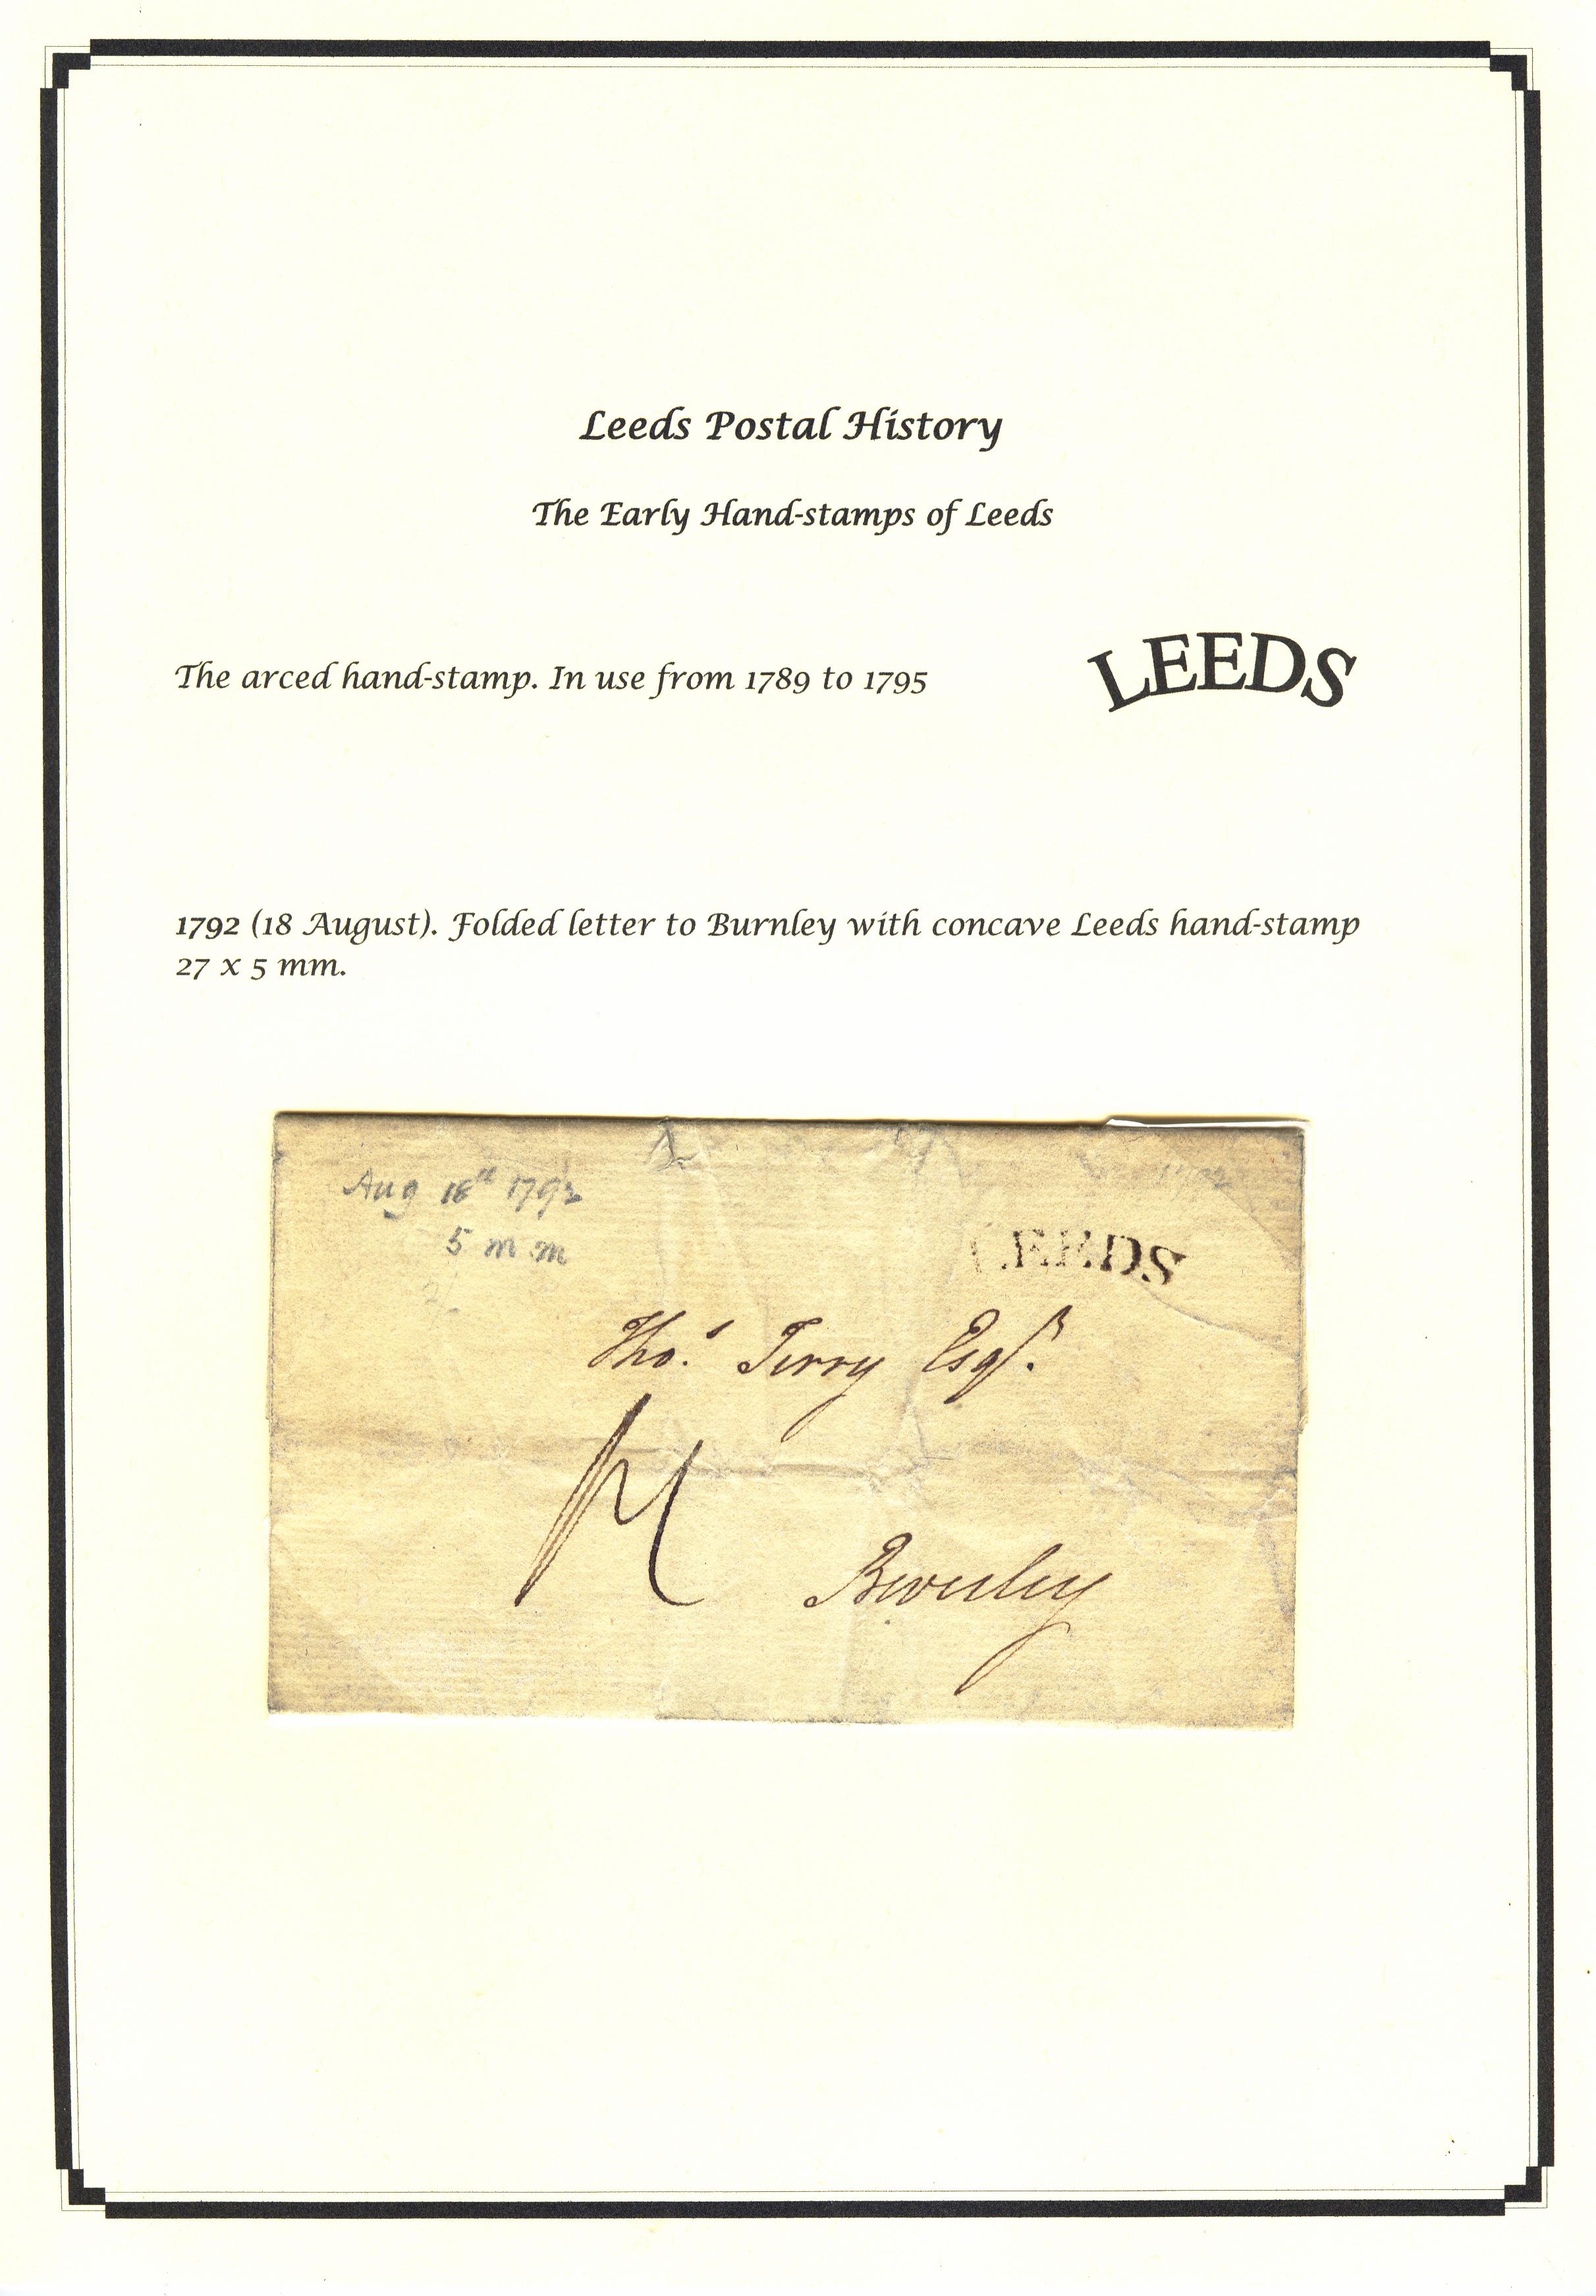 Leeds Postal History
The Early Hand-stamps of Leeds
The arced hand-stamp. In use from 1789 to 1795
LEEDS
1792 (18 August). Folded letter to Burnley with concave Leeds hand-stamp
27 x 5 mm.
Aug 18th 1792
1792
5 m m
LEEDS
Thos. Terry Esqr.
Beverley